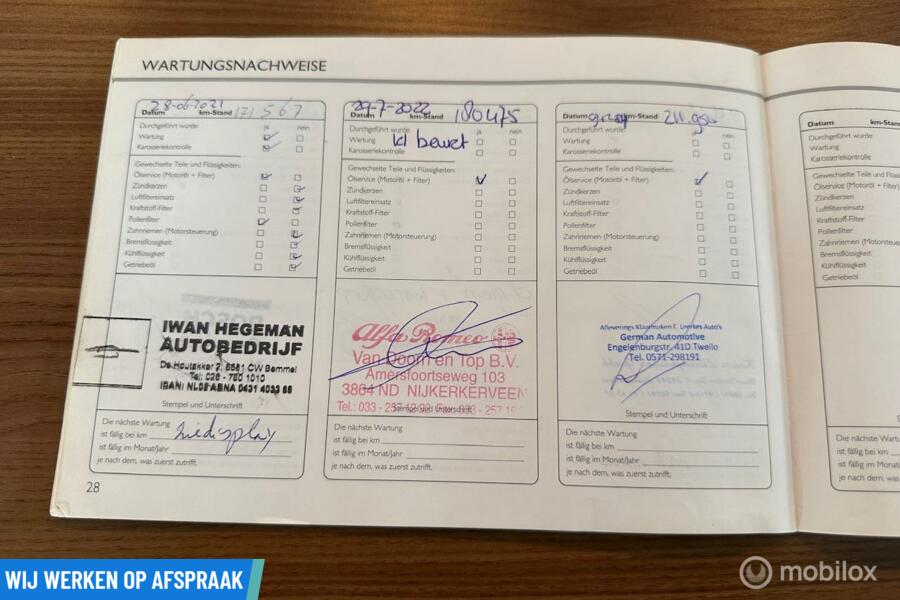 WARTUNGSNACHWEISE
28-06-2021
Datum km-Stand 171567
Durchgeführt wurde: ja nein
Wartung
Karosseriekontrolle
Gewechselte Teile und Flüssigkeiten:
Ölservice (Motoröl + Filter)
Zündkerzen
Luftfiltereinsatz
Kraftstoff-Filter
Pollenfilter
Zahnriemen (Motorsteuerung)
Bremsflüssigkeit
Kühlflüssigkeit
Getriebeöl
IWAN HEGEMAN
AUTOBEDRIJF
De Houtakker 2, 6681 CW Bemmel
Tel: 026 - 760 1010
Stempel und Unterschrift
Die nächste Wartung
ist fällig bei km
ist fällig im Monat/Jahr
je nach dem, was zuerst zutrifft.
28
29-7-2022
Datum km-Stand 180475
Durchgeführt wurde: ja nein
Wartung kl beurt
Karosseriekontrolle
Gewechselte Teile und Flüssigkeiten:
Ölservice (Motoröl + Filter)
Zündkerzen
Luftfiltereinsatz
Kraftstoff-Filter
Pollenfilter
Zahnriemen (Motorsteuerung)
Bremsflüssigkeit
Kühlflüssigkeit
Getriebeöl
Alfa Romeo
Van Doorn en Top B.V.
Amersfoortseweg 103
3864 ND NIJKERKERVEEN
Tel.: 033 - 257
Stempel und Unterschrift
Die nächste Wartung
ist fällig bei km
ist fällig im Monat/Jahr
je nach dem, was zuerst zutrifft.
Datum km-Stand
Durchgeführt wurde: ja nein
Wartung
Karosseriekontrolle
Gewechselte Teile und Flüssigkeiten:
Ölservice (Motoröl + Filter)
Zündkerzen
Luftfiltereinsatz
Kraftstoff-Filter
Pollenfilter
Zahnriemen (Motorsteuerung)
Bremsflüssigkeit
Kühlflüssigkeit
Getriebeöl
German Automotive
Engelenburgstr. 41D Twello
Tel. 0571-298191
Stempel und Unterschrift
Die nächste Wartung
ist fällig bei km
ist fällig im Monat/Jahr
je nach dem, was zuerst zutrifft.
Datum km-Stand
Durchgeführt wurde:
Wartung
Karosseriekontrolle
Gewechselte Teile und Flüssigkeiten:
Ölservice (Motoröl + Filter)
Zündkerzen
Luftfiltereinsatz
Kraftstoff-Filter
Pollenfilter
Zahnriemen (Motorsteuerung)
Bremsflüssigkeit
Kühlflüssigkeit
Getriebeöl
Die nächste Wartung
ist fällig bei km
ist fällig im Monat/Jahr
je nach dem, was zuerst
WIJ WERKEN OP AFSPRAAK
mobilox